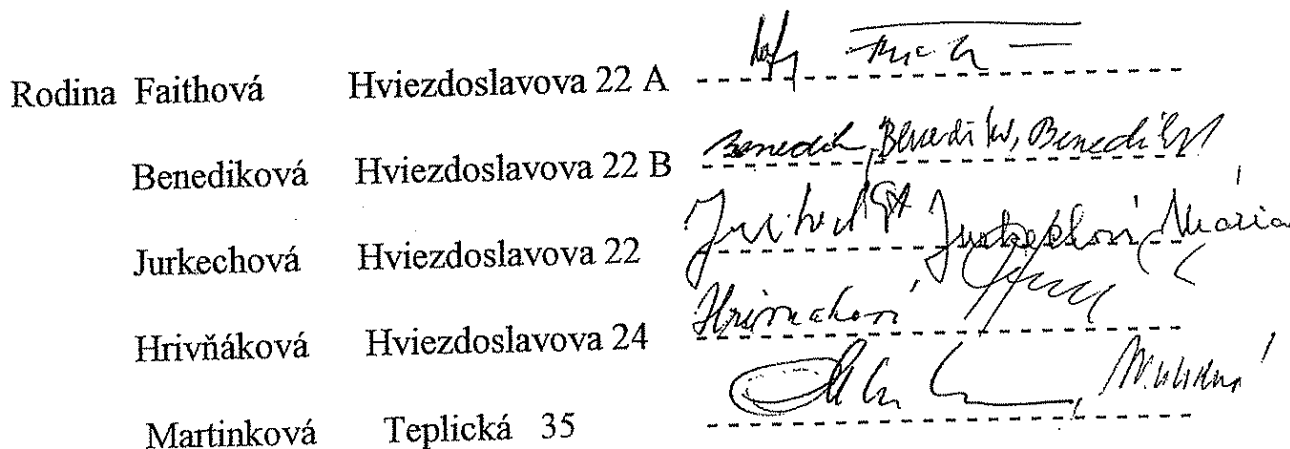 Rodina Faithová Hviezdoslavova 22 A
Benediková Hviezdoslavova 22 B Benedik, Benediková, Benediková
Jurkechová Hviezdoslavova 22 Jurkech Jurkechová Mária
Hrivňáková Hviezdoslavova 24 Hrivnáková
Martinková Teplická 35